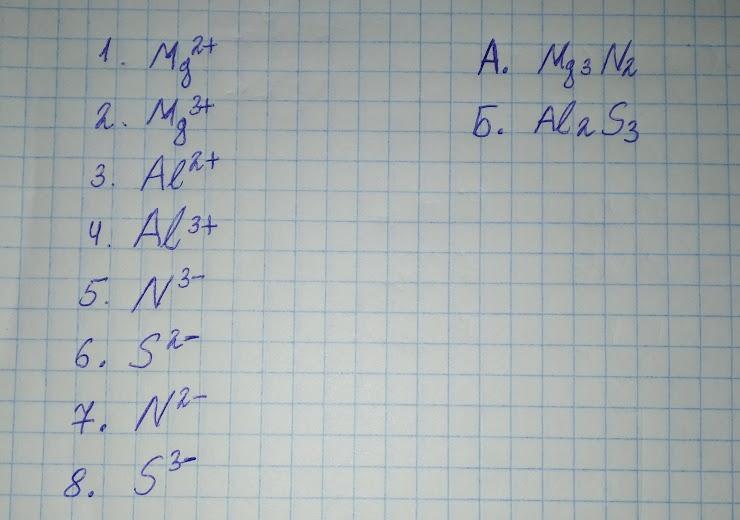 1. Mg²⁺
2. Mg³⁺
3. Al²⁺
4. Al³⁺
5. N³⁻
6. S²⁻
7. N²⁻
8. S³⁻
А. Mg₃N₂
Б. Al₂S₃